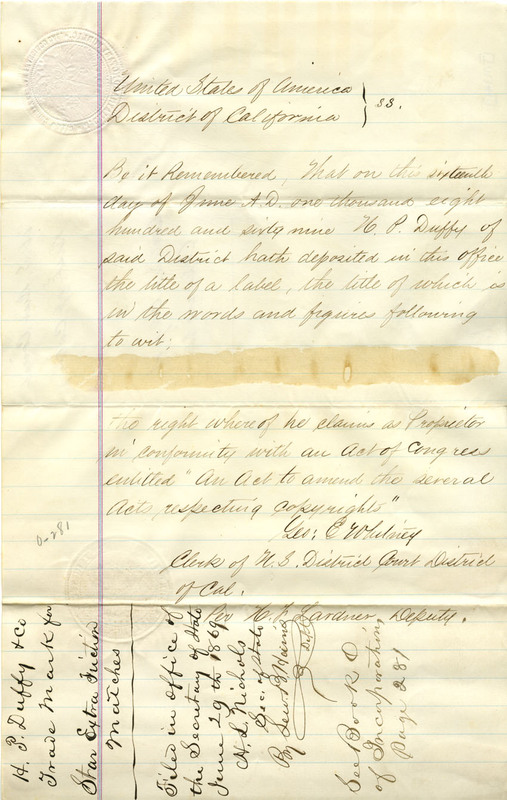 United States of America
District of California } ss.
Be it Remembered, That on this sixteenth
day of June A.D. one thousand eight
hundred and sixty nine H. P. Duffy of
said District hath deposited in this office
the title of a label, the title of which is
in the words and figures following
to wit:
the right whereof he claims as Proprietor
in conformity with an Act of Congress
entitled "An Act to amend the several
Acts, respecting copyrights"
Geo: C Whitney
Clerk of U. S. District Court District
of Cal.
Per Gardner, Deputy.
0-281
H. P. Duffy & Co
Trade Mark for
Star Extra Friction
Matches
Filed in Office of
the Secretary of State
June 29th 1869
H. L. Nichols
Sec. of State
By
See Book D
of Incorporations
Page 281